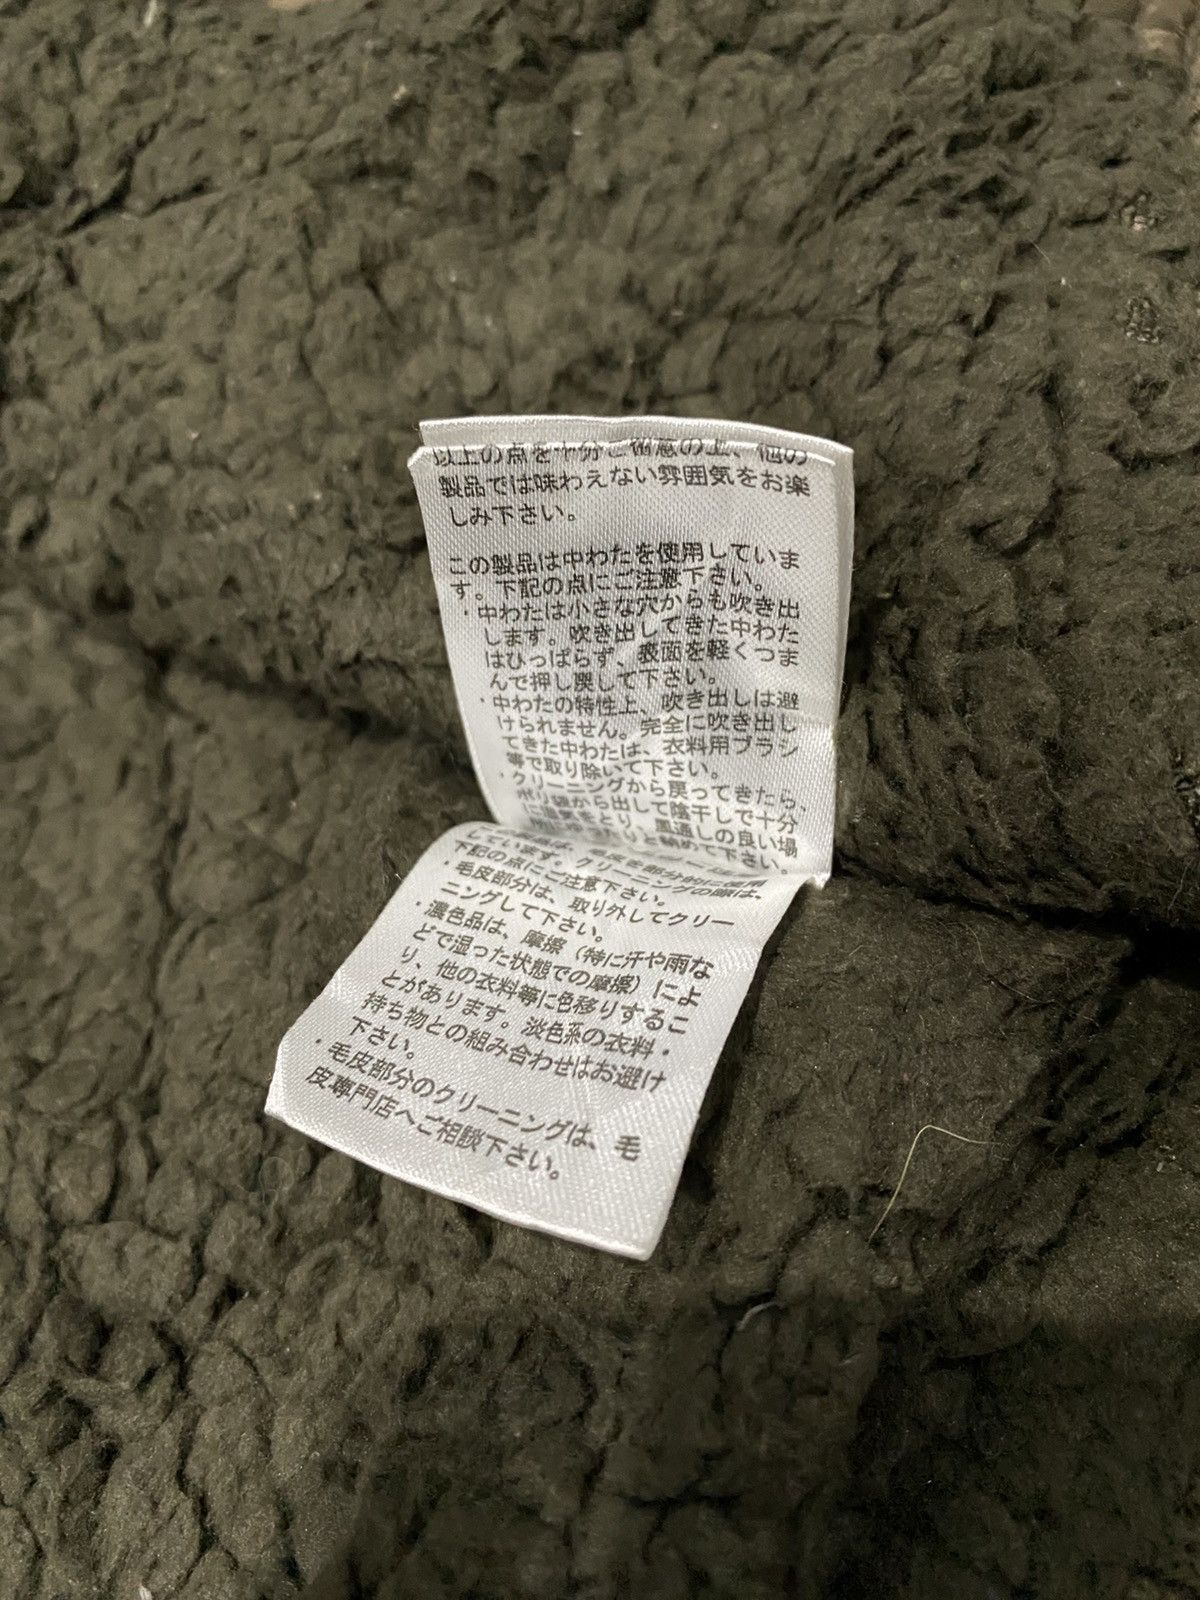 以上の点を十分ご留意の上、他の
製品では味わえない雰囲気をお楽
しみ下さい。
この製品は中わたを使用していま
す。下記の点にご注意下さい。
・中わたは小さな穴からも吹き出
します。吹き出してきた中わた
はひっぱらず、表面を軽くつま
んで押し戻して下さい。
・中わたの特性上、吹き出しは避
けられません。完全に吹き出し
てきた中わたは、衣料用ブラシ
等で取り除いて下さい。
・クリーニングから戻ってきたら、
ポリ袋から出して陰干しで十分
に湿気をとり、風通しの良い場
て下さい。
しています。クリーニングの際は、
下記の点にご注意下さい。
・毛皮部分は、取り外してクリー
ニングして下さい。
・濃色品は、摩擦（特に汗や雨な
どで湿った状態での摩擦）によ
り、他の衣料等に色移りするこ
とがあります。淡色系の衣料・
持ち物との組み合わせはお避け
下さい。
・毛皮部分のクリーニングは、毛
皮専門店へご相談下さい。